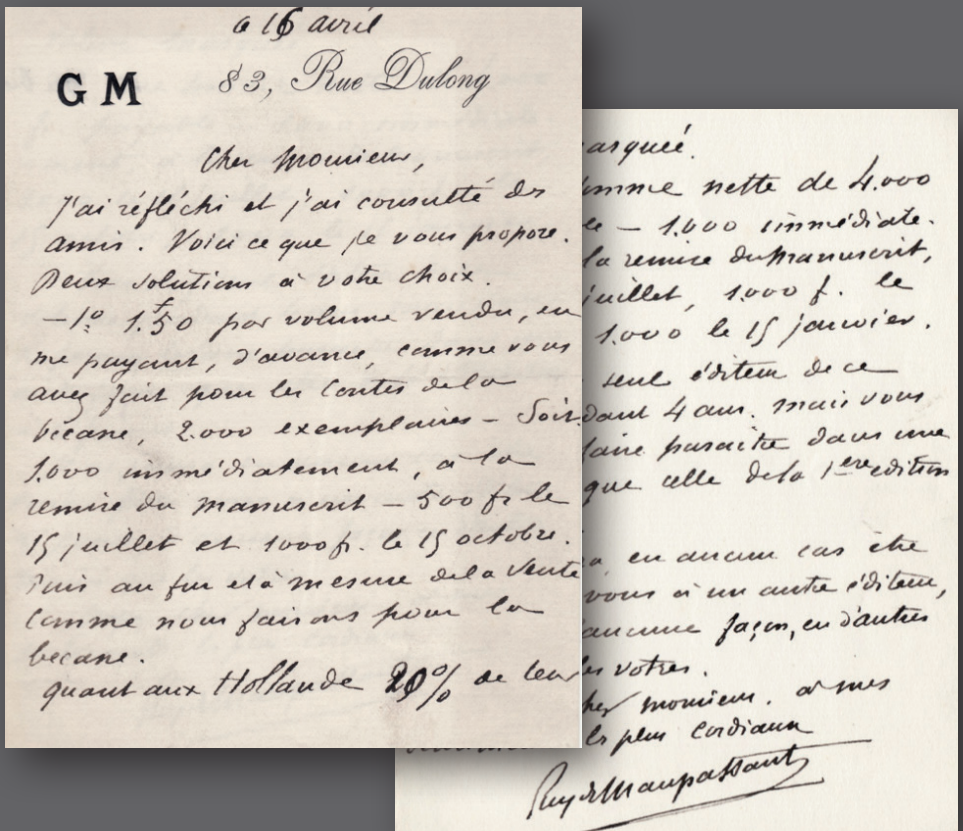 le 16 avril
G M
83, Rue Dulong
Cher Monsieur,
J'ai réfléchi et j'ai consulté des
amis. Voici ce que je vous propose.
Deux solutions à votre choix.
— 1º 1.f50 par volume vendu, en
me payant, d'avance, comme vous
avez fait pour les Contes de la
bécane, 2.000 exemplaires — Soit
1.000 immédiatement, à la
remise du manuscrit — 500 fr. le
15 juillet et 1000 fr. le 15 octobre.
Puis au fur et à mesure de la vente
comme nous faisons pour la
becane.
quant aux Hollande 20% de leur
arquée.
omme nette de 4.000
le — 1.000 immédiate-
la remise du Manuscrit,
juillet, 1.000 f. le
1.000 le 15 janvier.
seul éditeur de ce
dant 4 ans. Mais vous
faire paraître dans une
que celle de la 1ere edition
a en aucun cas être
vous à un autre éditeur,
aucune façon, en d'autres
les votres.
cher monsieur, à mes
ls plus cordiaux
Guy de Maupassant